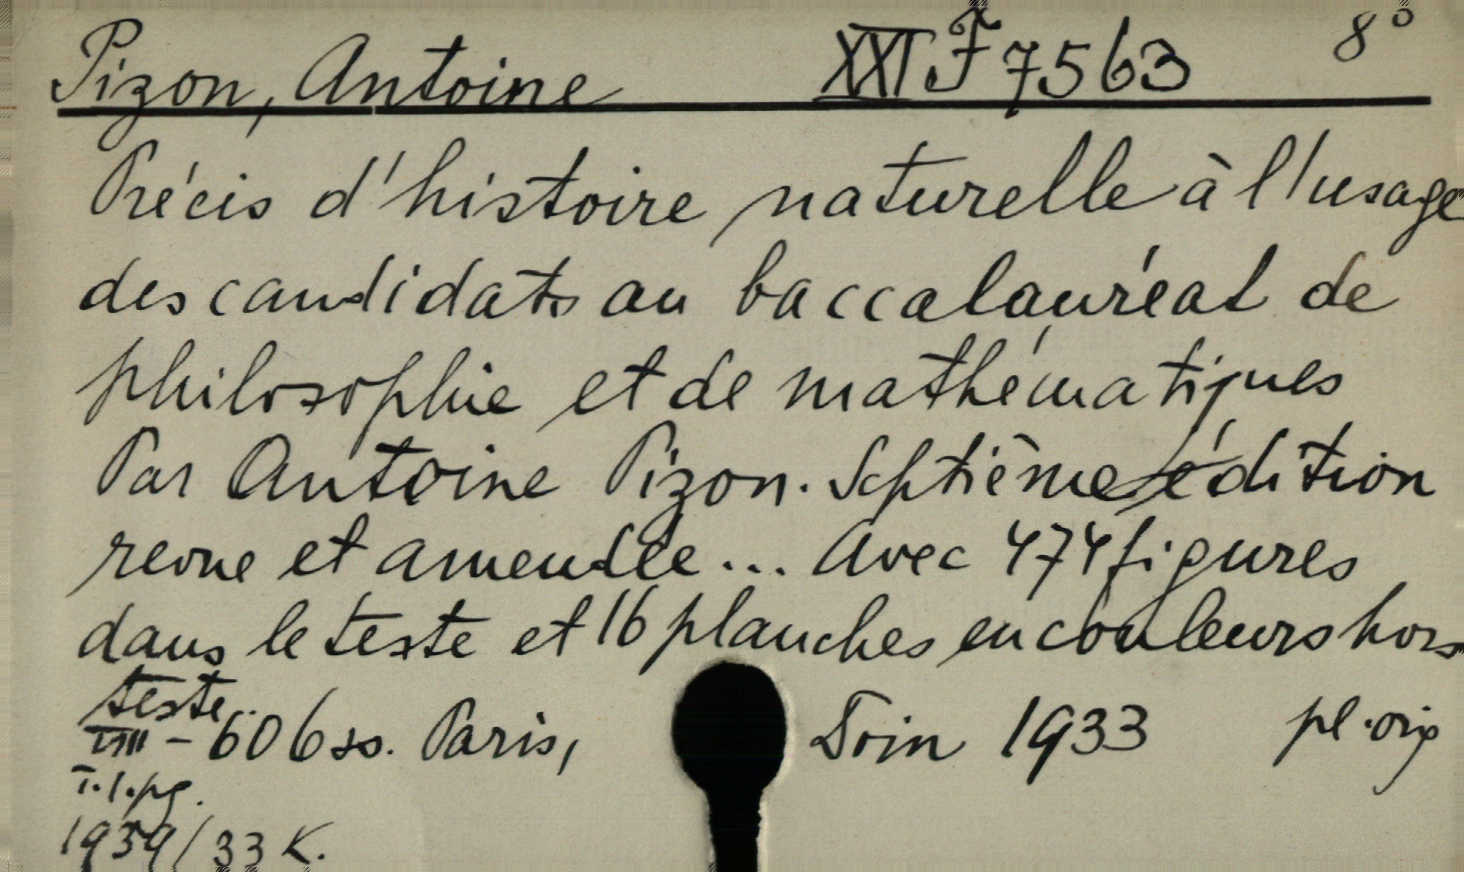 Pizon, Antoine XXI F 7563 8°
Précis d'histoire naturelle à l'usage
des candidats au baccalauréat de
philosophie et de mathématiques
Par Antoine Pizon. Septième édition
revue et amendée... Avec 474 figures
dans le texte et 16 planches en couleurs hors
texte..
VIII - 606 ss. Paris, Doin 1933 pl. oig
T.l.pg.
1939/33 K.